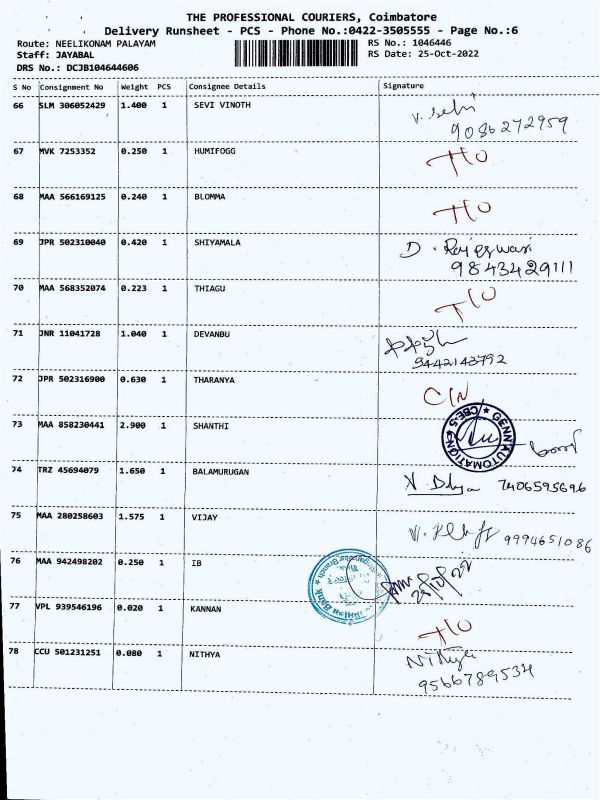 THE PROFESSIONAL COURIERS, Coimbatore
Delivery Runsheet - PCS - Phone No.:0422-3505555 - Page No.:6
Route: NEELIKONAM PALAYAM RS No.: 1046446
Staff: JAYABAL RS Date: 25-Oct-2022
DRS No.: DCJB104644606
S No Consignment No Weight PCS Consignee Details Signature
66 SLM 306052429 1.400 1 SEVI VINOTH
9086272959
67 MVK 7253352 0.250 1 HUMIFOGG T/O
68 MAA 566169125 0.240 1 BLOMMA T/O
69 JPR 502310040 0.420 1 SHIYAMALA D. Rajeswari
9843429111
70 MAA 568352074 0.223 1 THIAGU T/O
71 JNR 11041728 1.040 1 DEVANBU
9442143792
72 JPR 502316900 0.630 1 THARANYA C/N
73 MAA 858230441 2.900 1 SHANTHI
74 TRZ 45694079 1.650 1 BALAMURUGAN 7406595696
75 MAA 280258603 1.575 1 VIJAY 9994651086
76 MAA 942498202 0.250 1 IB
77 VPL 939546196 0.020 1 KANNAN T/O
78 CCU 501231251 0.080 1 NITHYA Nithya
9566789534